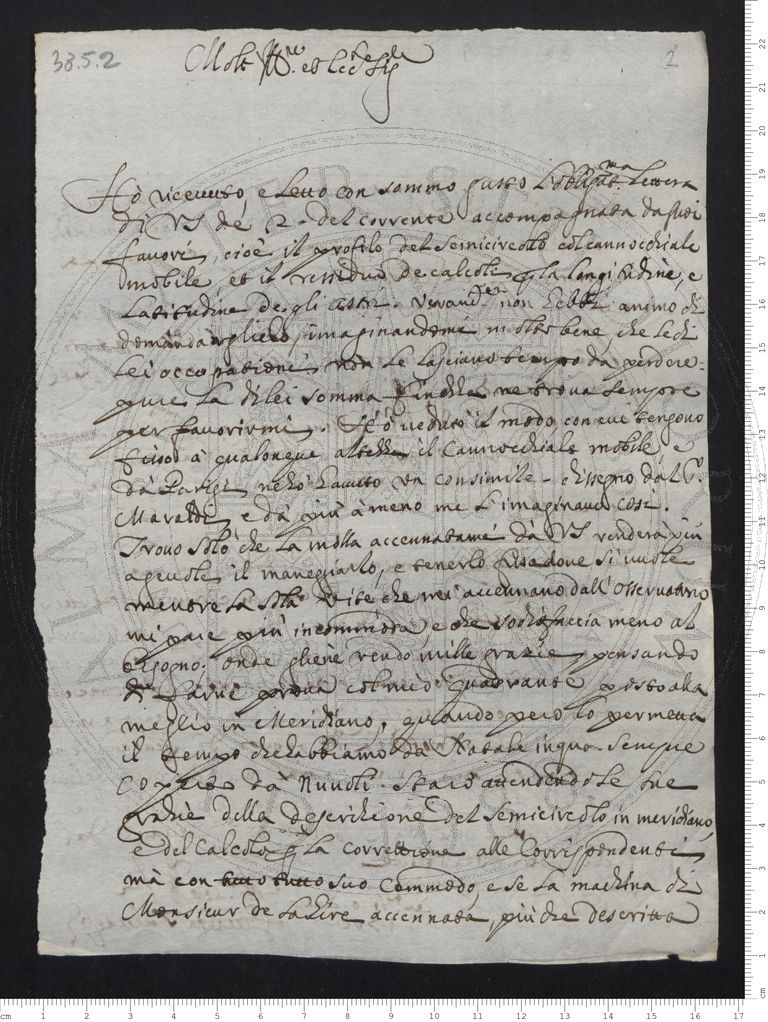 38.5.2
2
Molt Ill.re et Ecc.te Sig
Hò riceuuto, e letto con sommo gusto l'obligat.ma lettera
di VS de 2. del corrente accompagnata da suoi
fauori, cioè il profilo del semicircolo col cannocchiale
mobile, et il residuo de calcoli p la longitudine, e
latitudine degli astri. non hebbi animo di
domandarglielo, imaginandomi molto bene, che le di
lei occupationi non le lasciano tempo da perdere:
pure la di lei somma ne troua sempre
per fauorirmi. Hò ueduto il modo, con cui tengono
fisso à qualonque altezza il Cannocchiale mobile, e
da Parigi nehò hauuto un consimile disegno dal S.r
Maraldi, e dà più à meno me l'imaginauo così.
Trouo solo che la molla accennatami da VS renderà più
ageuole il maneggiarlo, e tenerlo fisso doue si uuole
mentre la sola uite che mi accennano dall'Osseruatorio
mi pare più incommoda e che sodisfaccia meno al
bisogno. onde gliene rendo mille grazie, pensando
di farne proua col mio quadrante posto alla
meglio in Meridiano, quando però lo permetta
il tempo che habbiamo da Natale in qua sempre
coperto dà Nuuoli. Starò attendendo le sue
grazie della descrizione del semicircolo in meridiano,
e del Calcolo p la correttione alle Corrispondenti,
mà con suo Commodo, e se la machina di
Monsieur de la Hire accennata, più che descritta